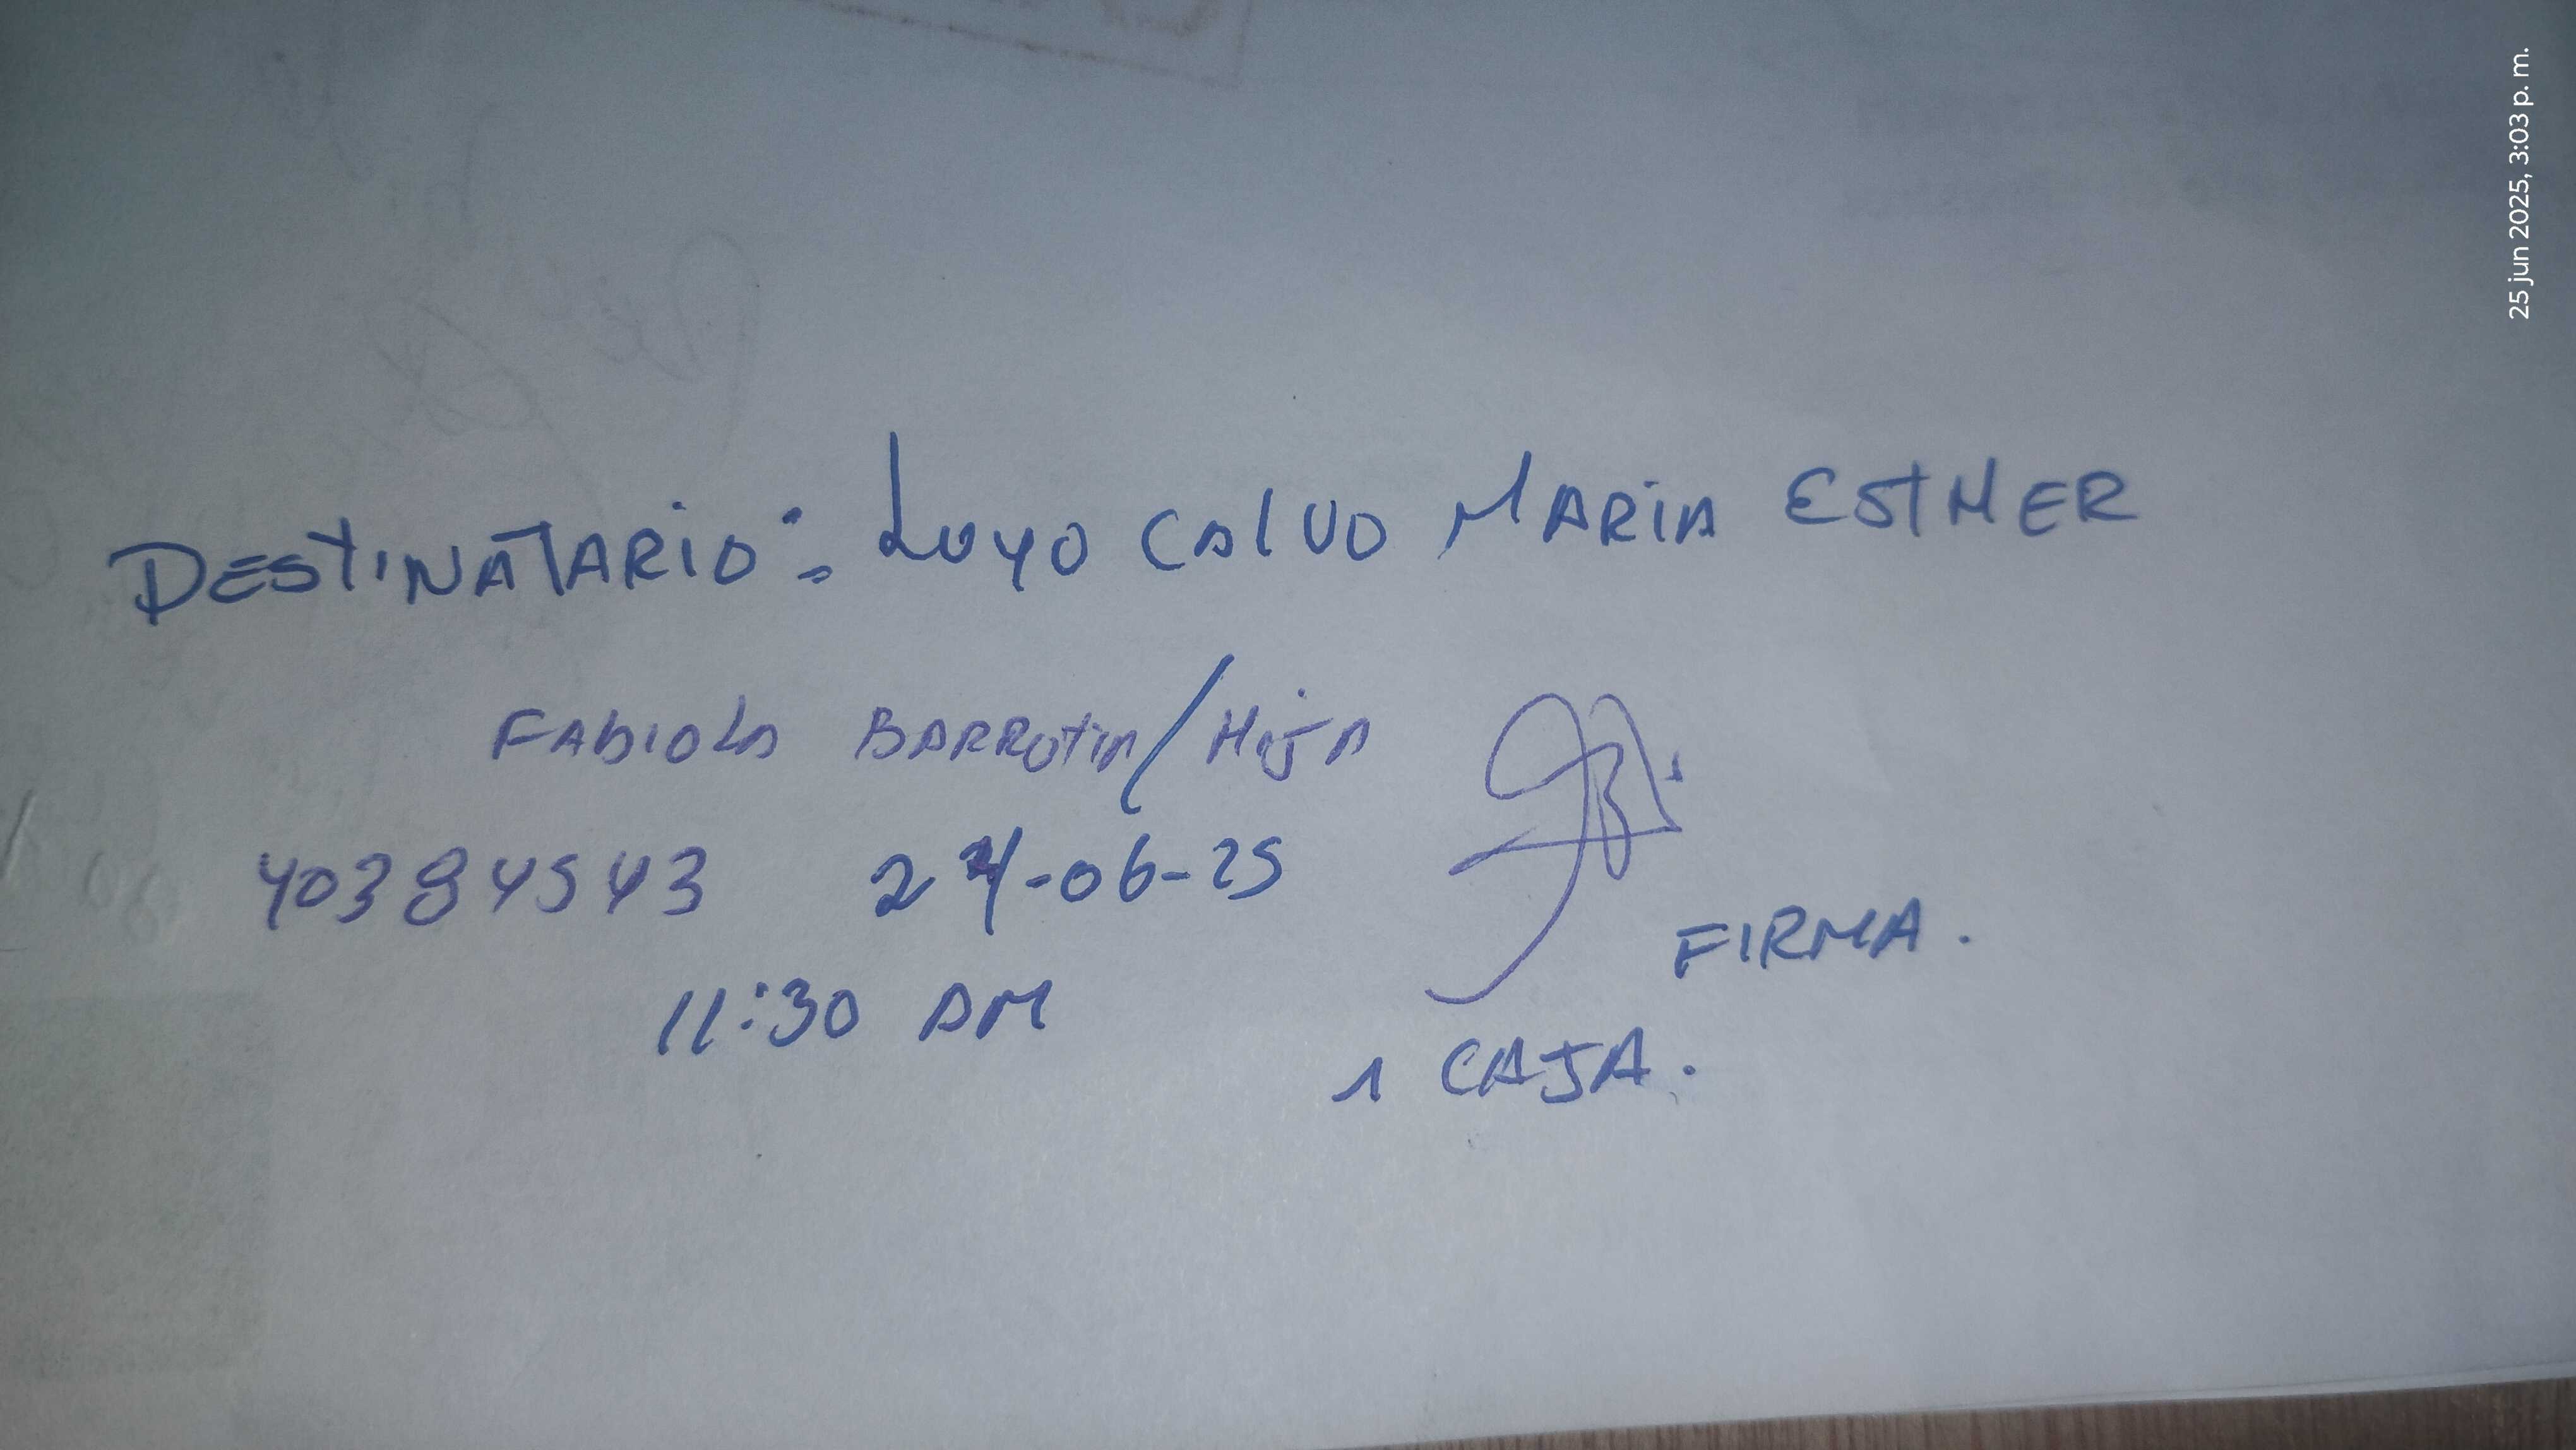 DESTINATARIO: LUYO CALVO MARIA ESTHER
FABIOLA BARRUTIA/HIJA
40384543 24-06-25
FIRMA.
11:30 AM
1 CAJA.
25 jun 2025, 3:03 p. m.